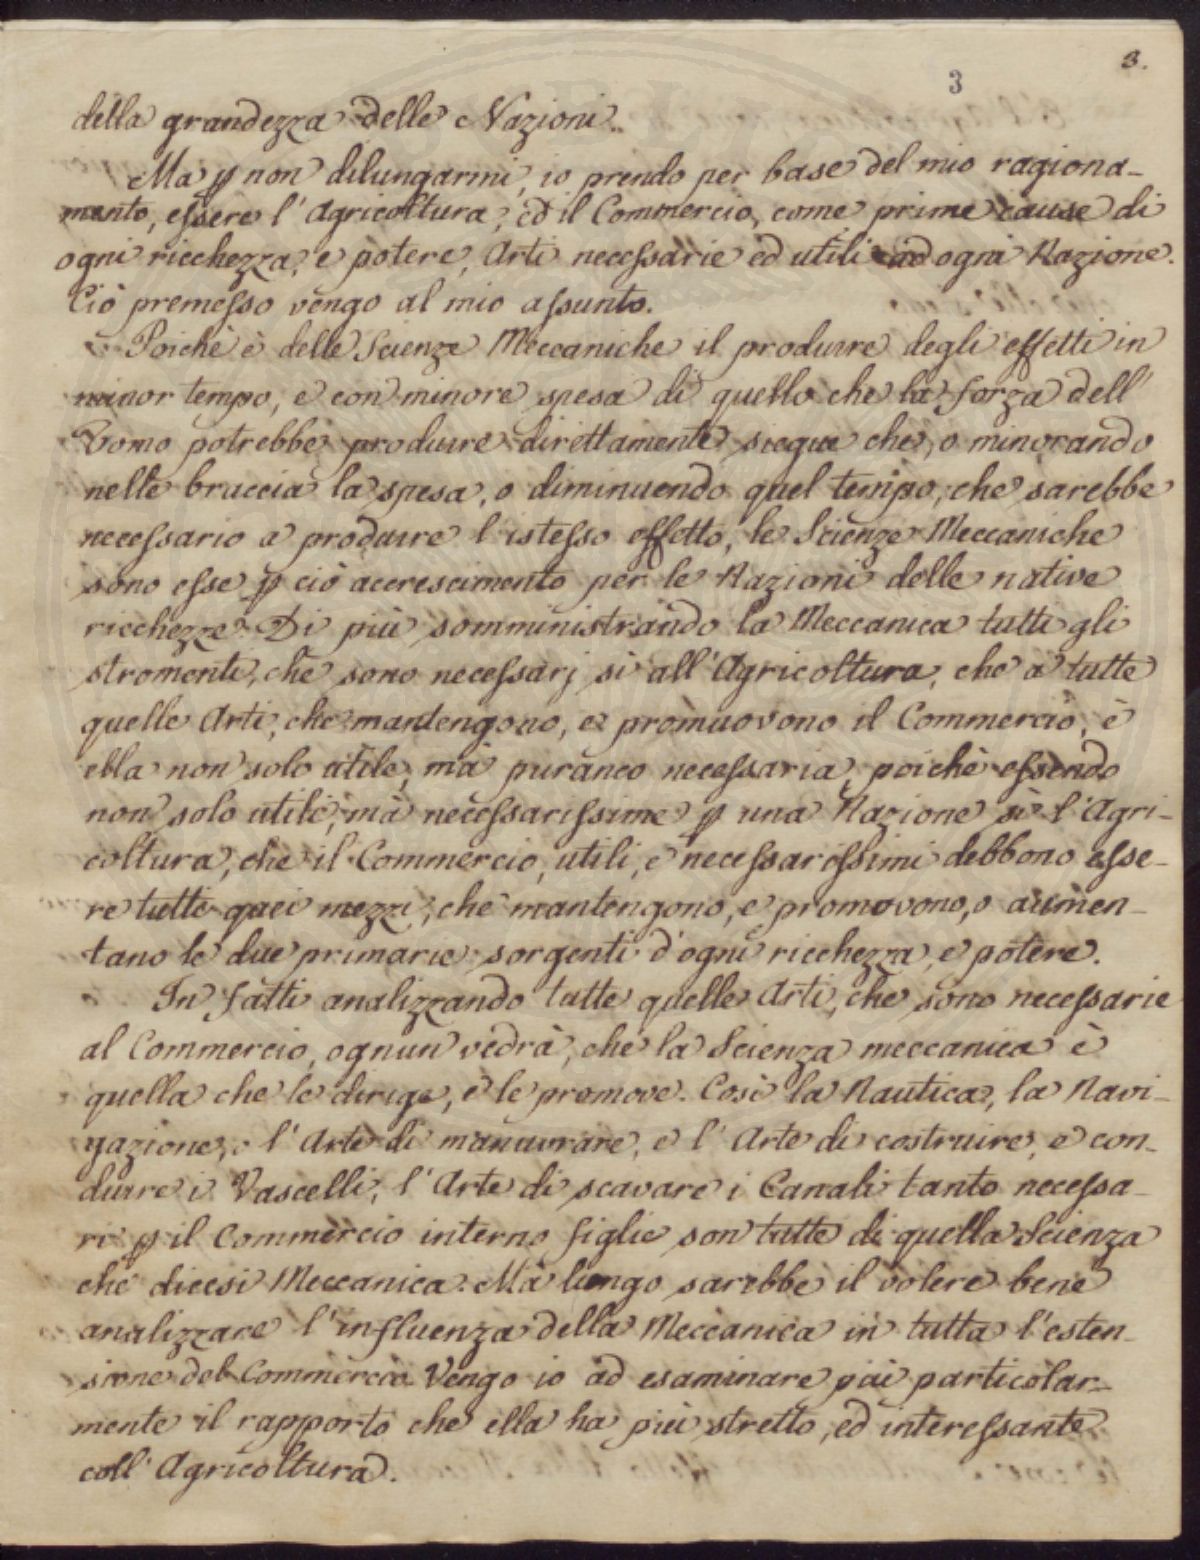 3 3.
della grandezza delle Nazioni.
Ma p non dilungarmi, io prendo per base del mio ragiona-
mento, essere l'Agricoltura, ed il Commercio, come prime cause di
ogni ricchezza, e potere, Arti necessarie ed utili ad ogni Nazione.
Ciò premesso vengo al mio assunto.
Poichè è delle Scienze Meccaniche il produrre degli effetti in
minor tempo, e con minore spesa di quello che la forza dell'
Uomo potrebbe produrre direttamente siegue che, o minorando
nelle braccia la spesa, o diminuendo quel tempo, che sarebbe
necessario a produrre l'istesso effetto, le Scienze Meccaniche
sono esse p ciò accrescimento per le Nazioni delle native
ricchezze. Di più somministrando la Meccanica tutti gli
stromenti, che sono necessarj sì all'Agricoltura, che a tutte
quelle Arti, che mantengono, e promuovono il Commercio, è
ella non solo utile, mà puranco necessaria, poichè essendo
non solo utili, mà necessarissime p una Nazione sì l'Agri-
coltura, che il Commercio, utili, e necessarissimi debbono esse-
re tutti quei mezzi, che mantengono, e promovono, o aumen-
tano le due primarie sorgenti d'ogni ricchezza, e potere.
In fatti analizzando tutte quelle Arti, che sono necessarie
al Commercio, ognun vedrà, che la Scienza meccanica è
quella che le dirige, e le promove. Così la Nautica, la Navi-
gazione, o l'Arte di manuvrare, e l'Arte di costruire, e con-
durre i Vascelli, l'Arte di scavare i Canali tanto necessa-
ri p il Commercio interno figlie son tutte di quella Scienza
che dicesi Meccanica. Mà lungo sarebbe il volere bene
analizzare l'influenza della Meccanica in tutta l'esten-
sione del Commercio. Vengo io ad esaminare più particolar-
mente il rapporto che ella ha più stretto, ed interessante
coll'Agricoltura.